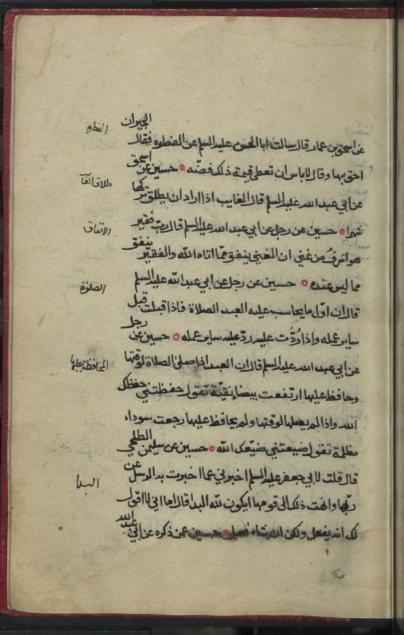 الجيران
عن اسحق بن عمار قال سالت ابا الحسن عليه السلم عن الفطرة فقال
الفطرة
احق بها وقال لاباس ان تعطى قيمة ذلك فضة حسين عن اسحق
عن ابي عبد الله عليه السلم قال الغايب اذا اراد ان يطلق تركها
طلاق الغائب
شهرا حسين عن رجل عن ابي عبد الله عليه السلم قال رب فقير
الانفاق
هو اسرف من غني ان الغني ينفق مما اتاه الله والفقير ينفق
مما ليس عنده حسين عن رجل عن ابي عبد الله عليه السلم
الصلوة
قال ان اول ما يحاسب عليه العبد الصلاة فاذا قبلت قبل
ساير عمله واذا ردت عليه رد عليه ساير عمله حسين عن رجل
عن ابي عبد الله عليه السلم قال ان العبد اذا صلى الصلاة لوقتها
المحافظة عليها
وحافظ عليها ارتفعت بيضاء نقية تقول حفظتني حفظك
الله واذا لم يصلها لوقتها ولم يحافظ عليها رجعت سوداء
مظلمة تقول ضيعتني ضيعك الله حسين عن سليمن الطلحي
قال قلت لابي جعفر عليه السلم اخبرني عما اخبرت به الرسل عن
ربها وانهت ذلك الى قومها ايكون لله البدا قال اما اني لا اقول
البدا
لك انه يفعل ولكن ان شاء فعل حسين عمن ذكره عن ابي عبد الله